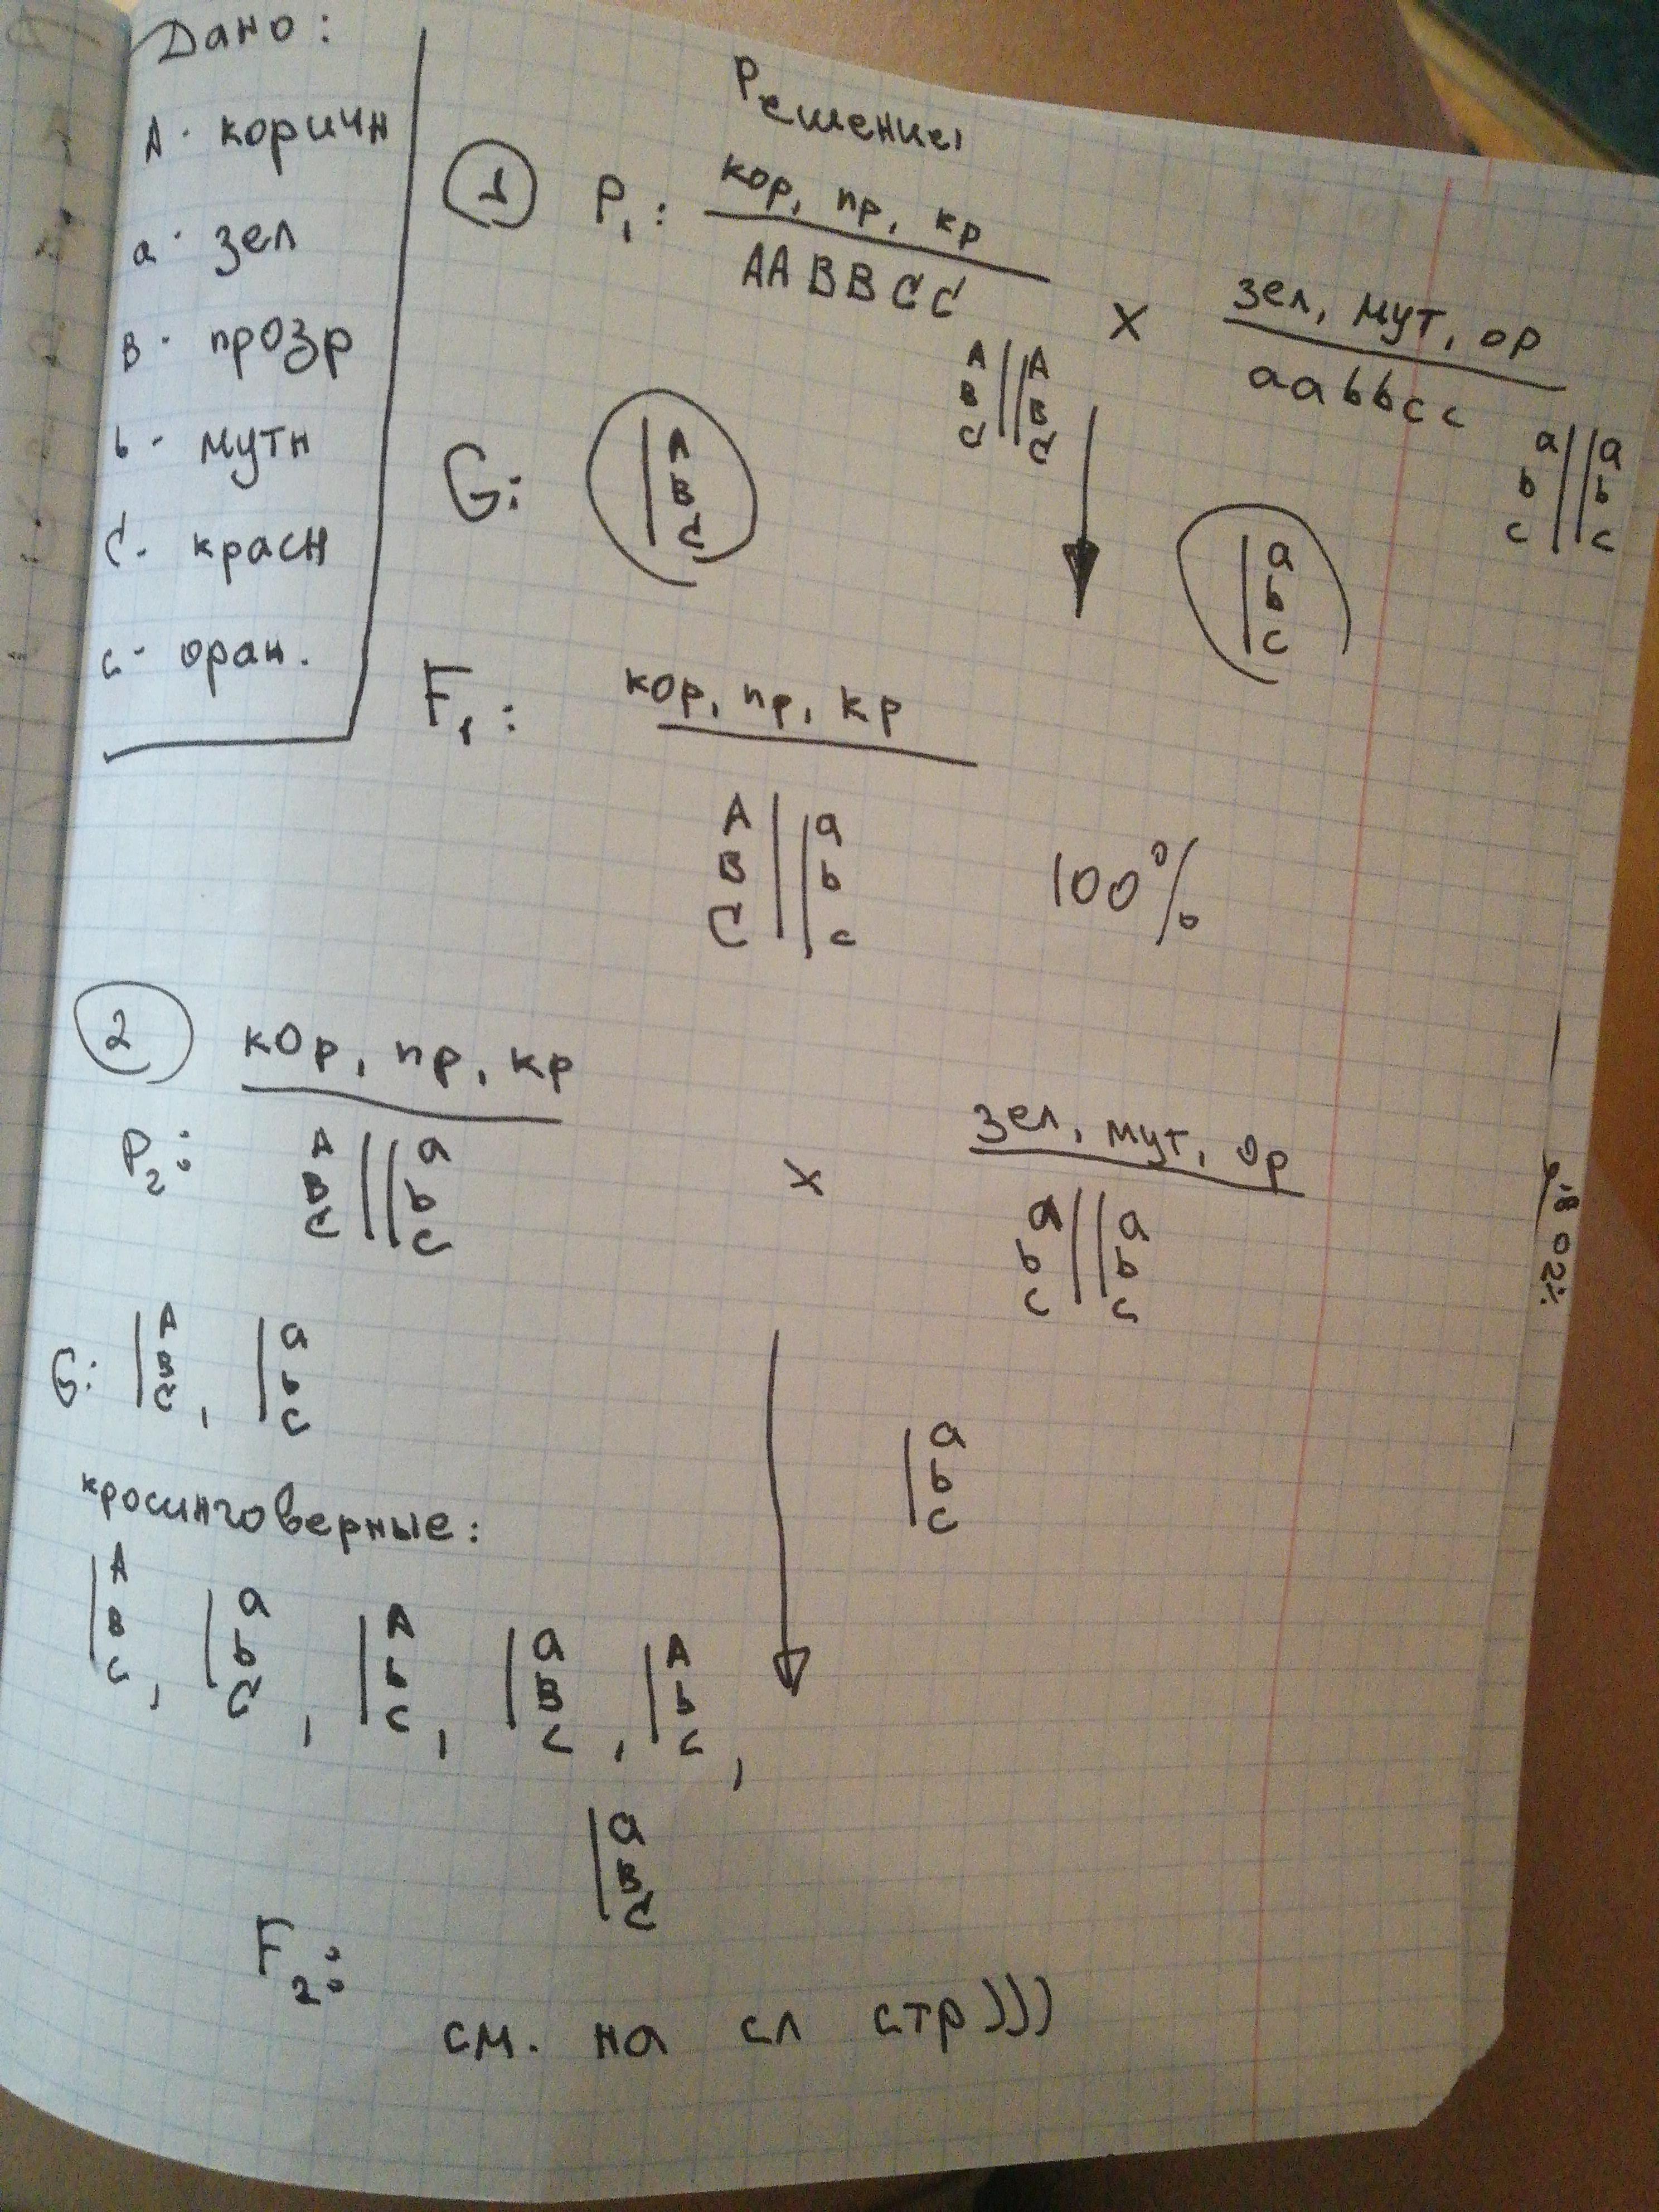 Дано:
А - коричн
а - зел
В - прозр
b - мутн
С - красн
с - оран.
Решение:
1 P1: кор, пр, кр
AABBCC
x
зел, мут, ор
aabbcc
A || A
B || B
C || C
a || a
b || b
c || c
G: | A B C
| a b c
F1: кор, пр, кр
A || a
B || b
C || c
100%
2 кор, пр, кр
P2: A || a
B || b
C || c
x
зел, мут, ор
a || a
b || b
c || c
G: | A B C , | a b c
| a b c
кросинговерные:
| A B c , | a b C , | A b c , | a B c , | A b c ,
| a B C
F2:
см. на сл стр)))